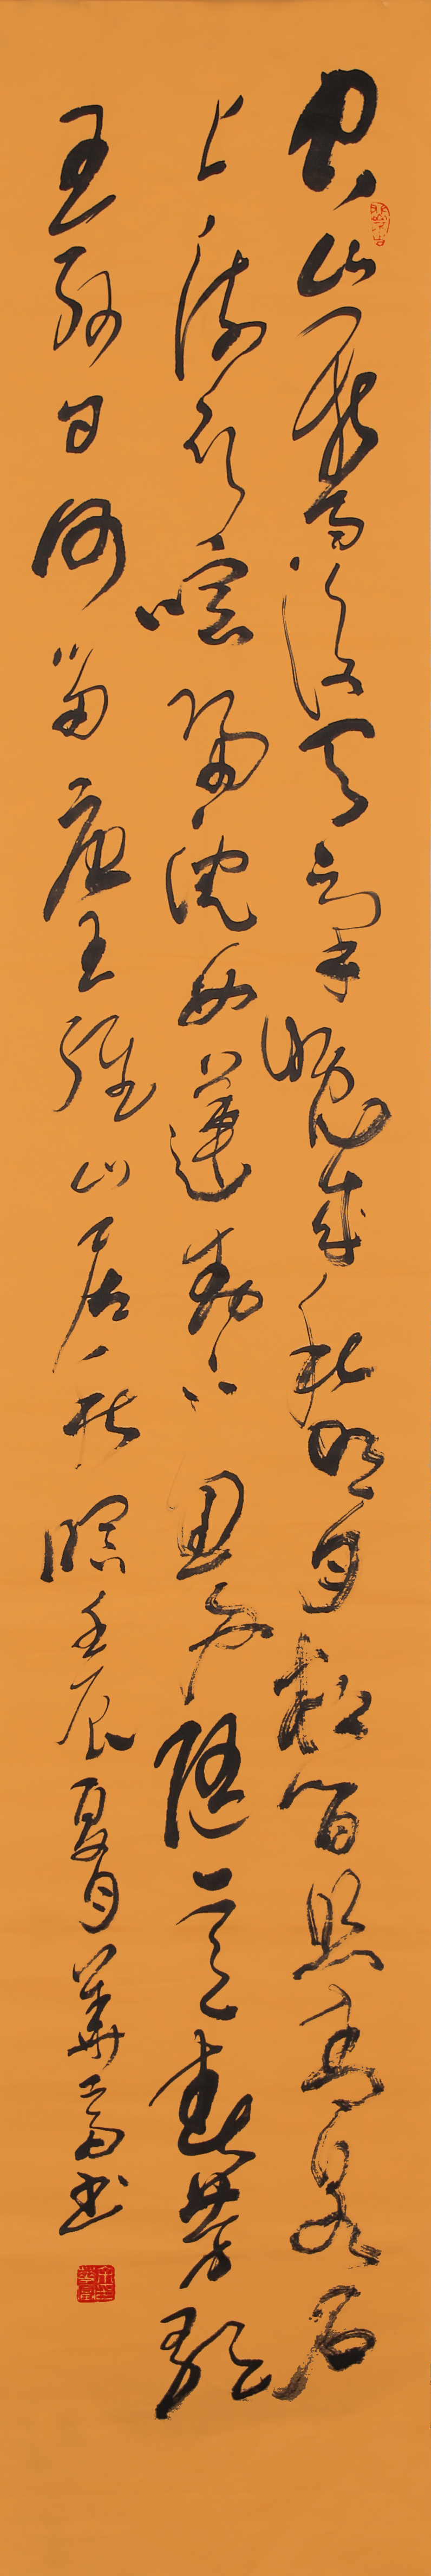 空山新雨後天氣晚来秋明月松間照清泉石
上流竹喧歸浣女蓮動下漁舟隨意春芳歇
王孫自何留唐王維山居秋暝壬辰夏月華富书